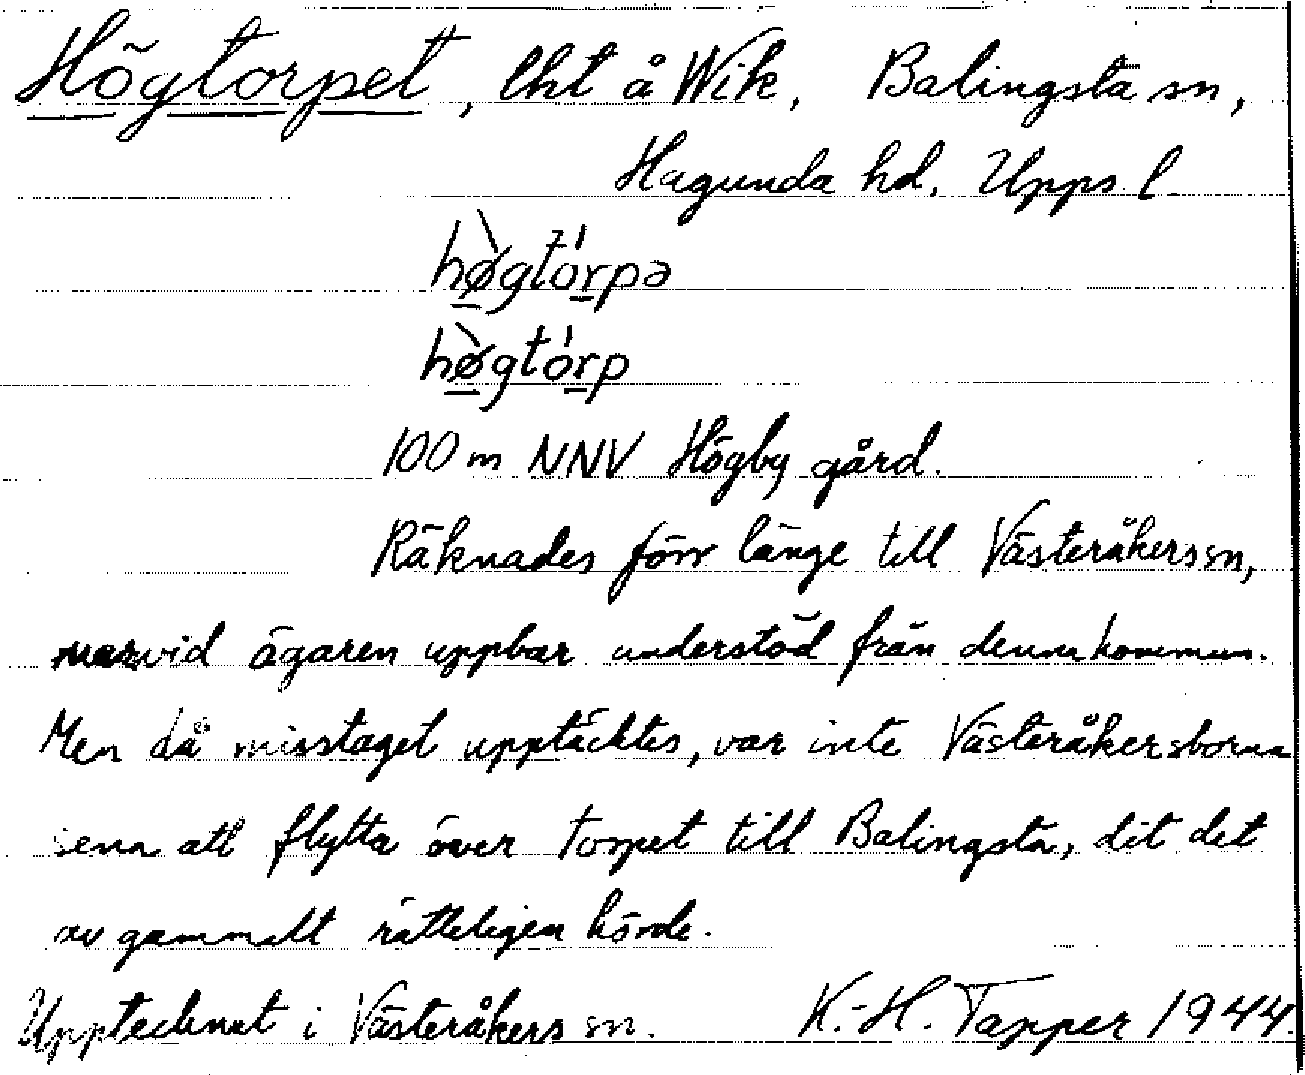 Högtorpet, lht å Wik, Balingsta sn,
Hagunda hd. Upps. l
hø̀gtórpə
hø̀gtórp
100 m NNV Högby gård.
Räknades förr länge till Västeråkers sn,
varvid ägaren uppbar understöd från denna kommun.
Men då misstaget upptäcktes, var inte Västeråkersborna
sena att flytta över torpet till Balingsta, dit det
av gammalt rätteligen hörde.
Upptecknat i Västeråkers sn. K.-H. Tapper 1944.